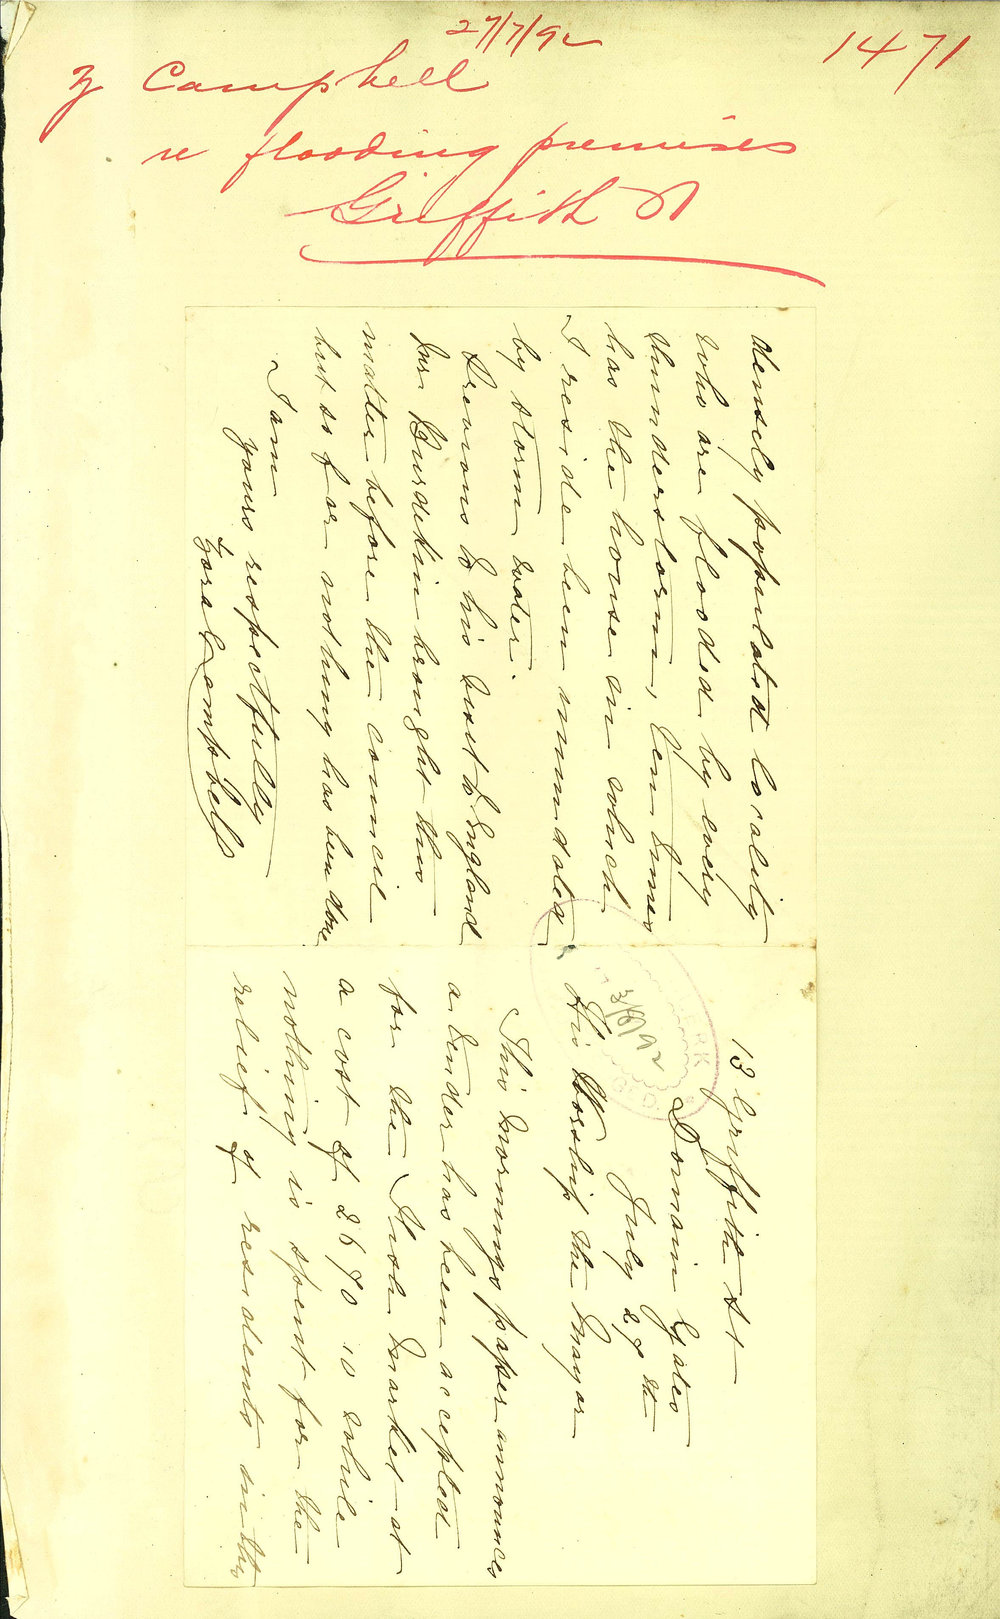 27/7/92
1471
Z Campbell
re flooding premises
Griffith St
13 Griffith St
Domain Gates
July 27th
His Worship the Mayor
This mornings paper announces
a tender has been accepted
for the Fish Market at
a cost of 2690.10 while
nothing is spent for the
relief of residents in this
densely populated locality
who are flooded by every
thunderstorm, ten times
has the house in which
I reside been inundated
by storm water.
Previous to his visit to England
Mr Burdekin brought this
matter before the council
but so far nothing has been done
I am
yours respectfully
Zara Campbell